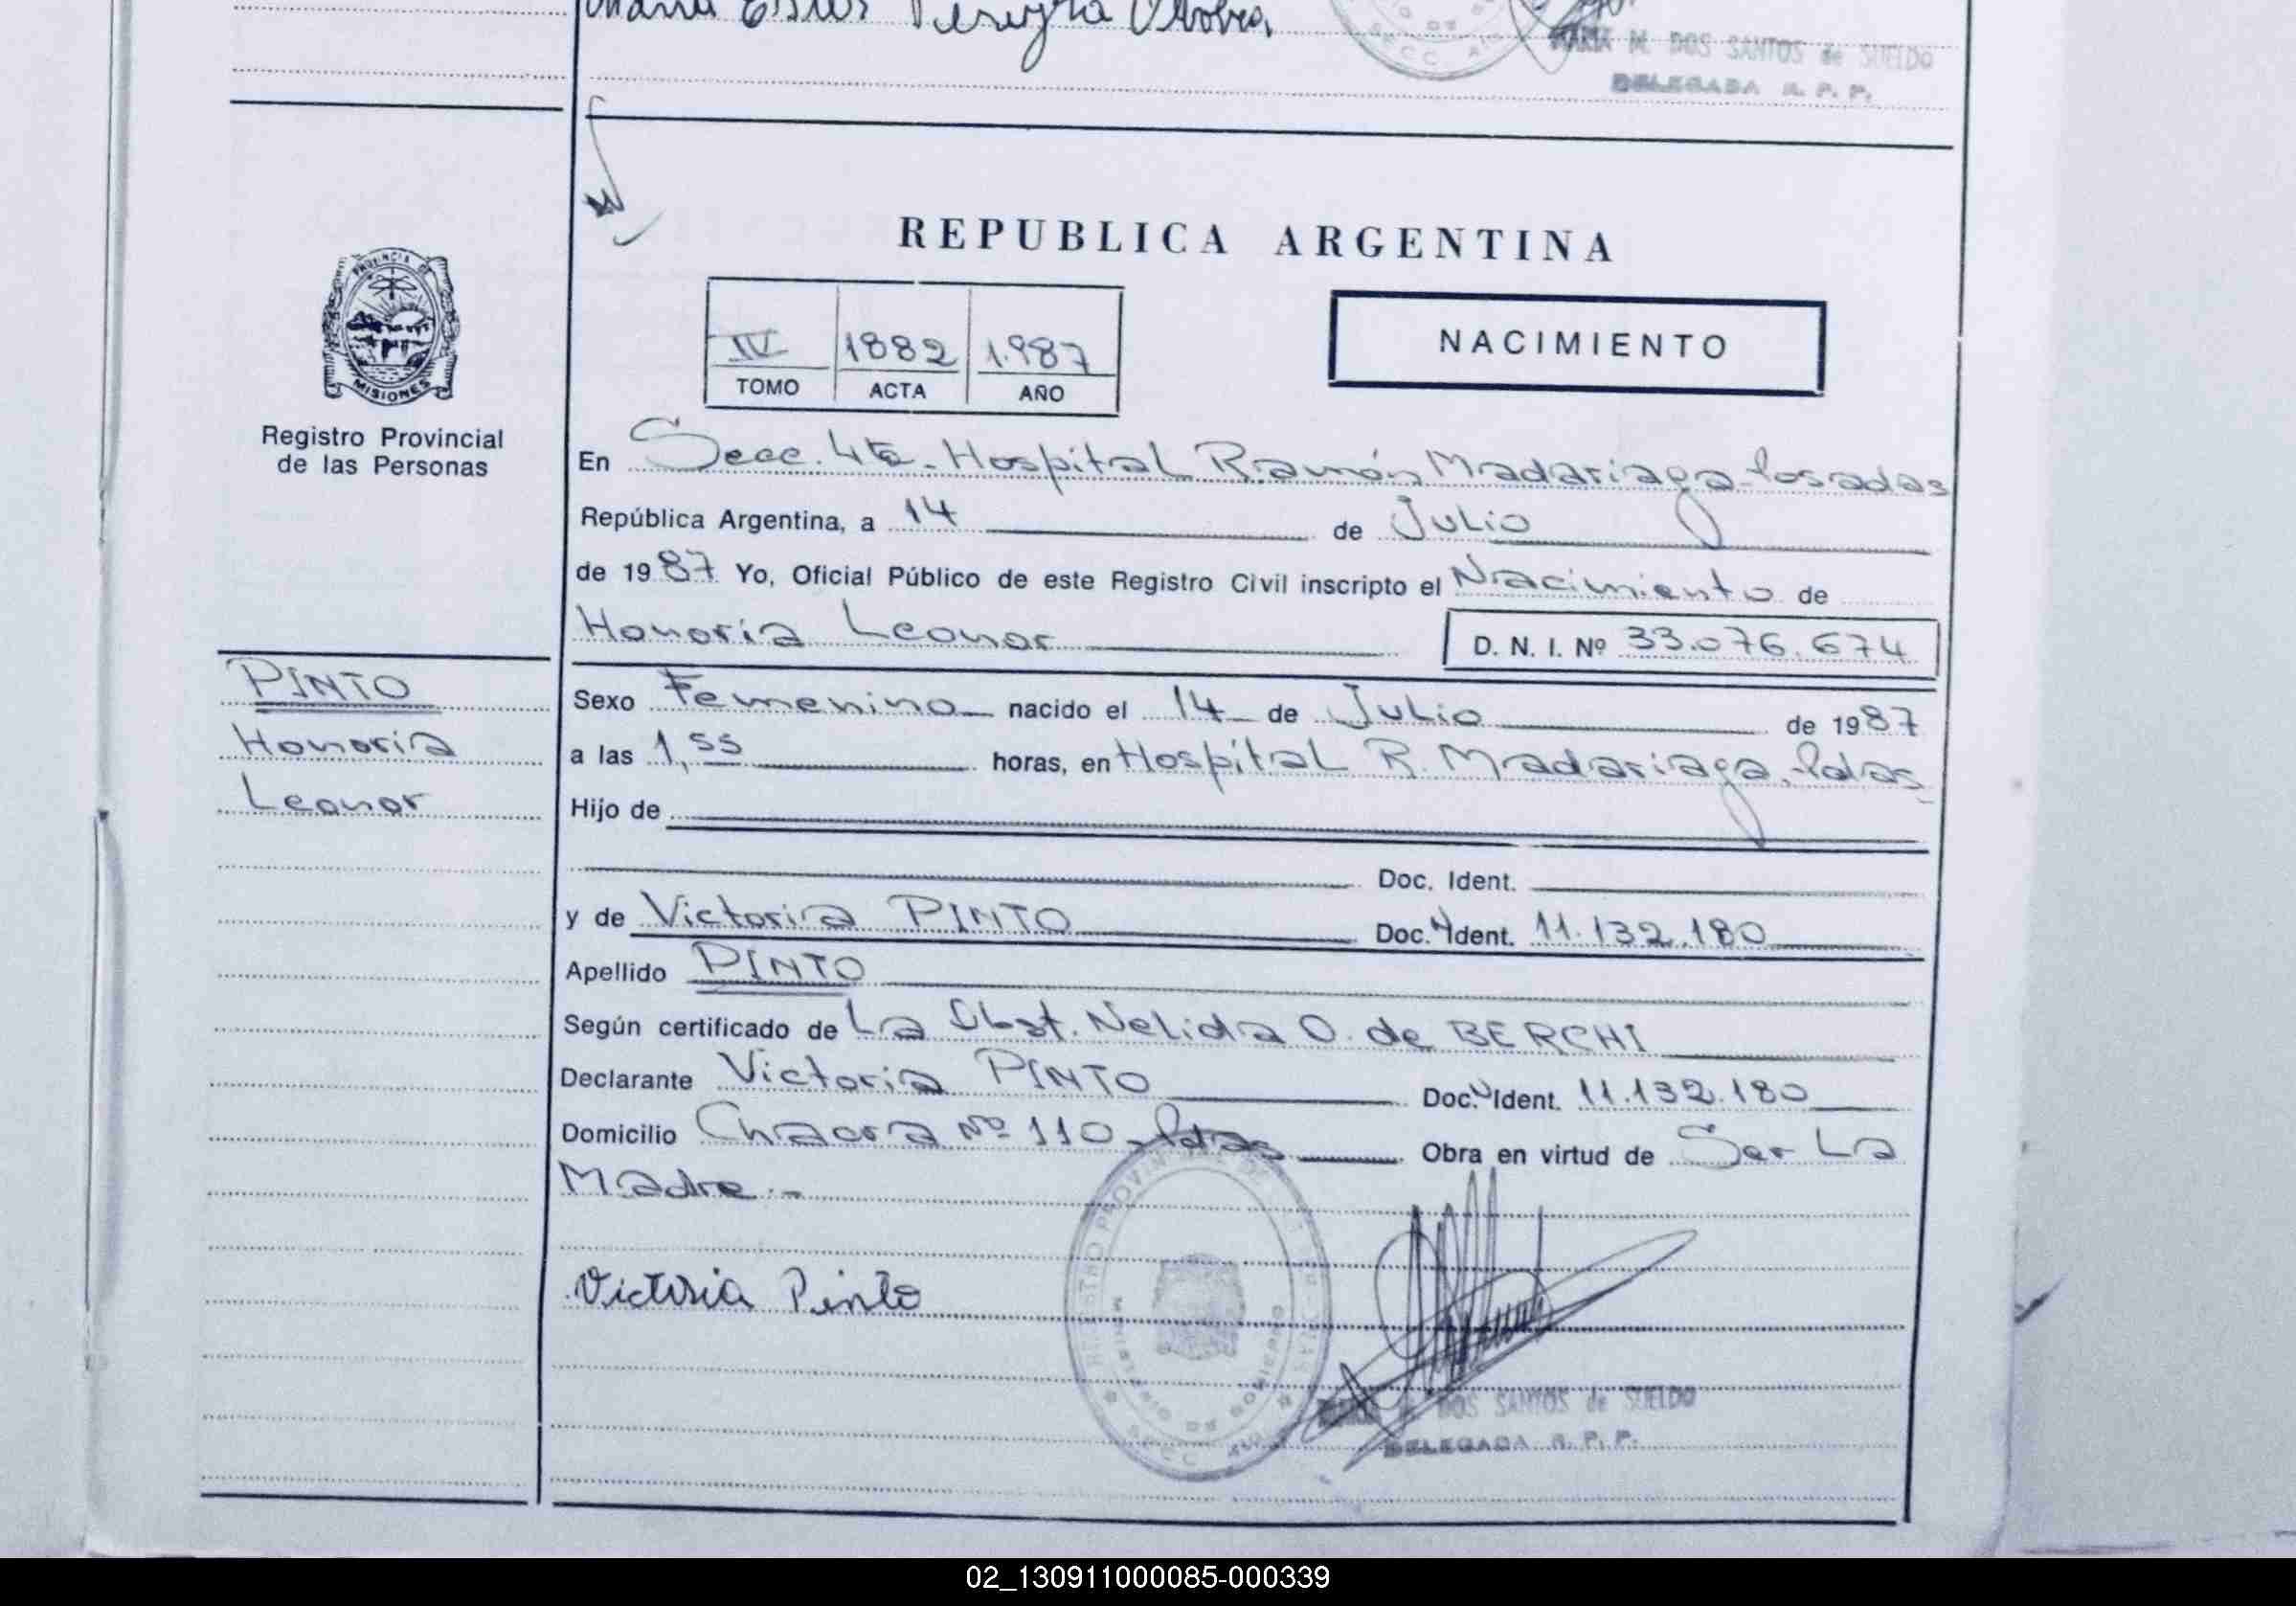 María Pereyra
SECC.
MARIA M. DOS SANTOS de SUELDO
DELEGADA R. P. P.
REPUBLICA ARGENTINA
PROVINCIA DE
MISIONES
IV 1882 1.987
TOMO ACTA AÑO
NACIMIENTO
Registro Provincial
de las Personas
En Secc. 4ta - Hospital Ramón Madariaga - Posadas
República Argentina, a 14 de Julio
de 1987 Yo, Oficial Público de este Registro Civil inscripto el Nacimiento de
Honoria Leonor D. N. I. Nº 33.076.674
PINTO
Honoria
Leonor
Sexo Femenino nacido el 14 de Julio de 1987
a las 1,55 horas, en Hospital R. Madariaga, - Pdas
Hijo de
Doc. Ident.
y de Victoria PINTO Doc. Ident. 11.132.180
Apellido PINTO
Según certificado de La Obst. Nelida O. de BERCHI
Declarante Victoria PINTO Doc. Ident. 11.132.180
Domicilio Chacra Nº 110 - Pdas Obra en virtud de Ser La
Madre.-
REGISTRO PROVINCIAL DE LAS
MINISTERIO DE GOBIERNO
SECC.
Victoria Pinto
MARIA M. DOS SANTOS de SUELDO
DELEGADA R. P. P.
02_130911000085-000339